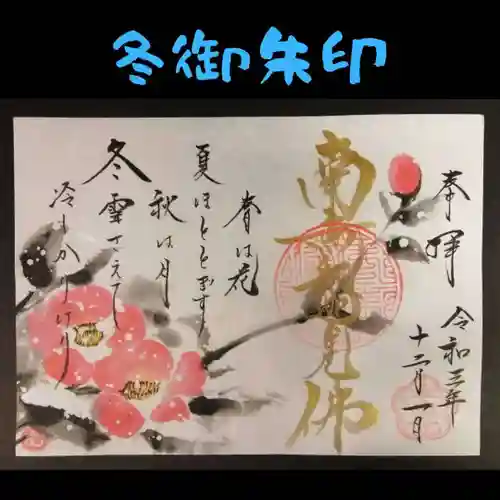 冬御朱印
奉拝
令和三年
十二月一日
南無釈迦佛
春は花
夏ほととぎす
秋は月
冬雪さえて
冷しかりけり